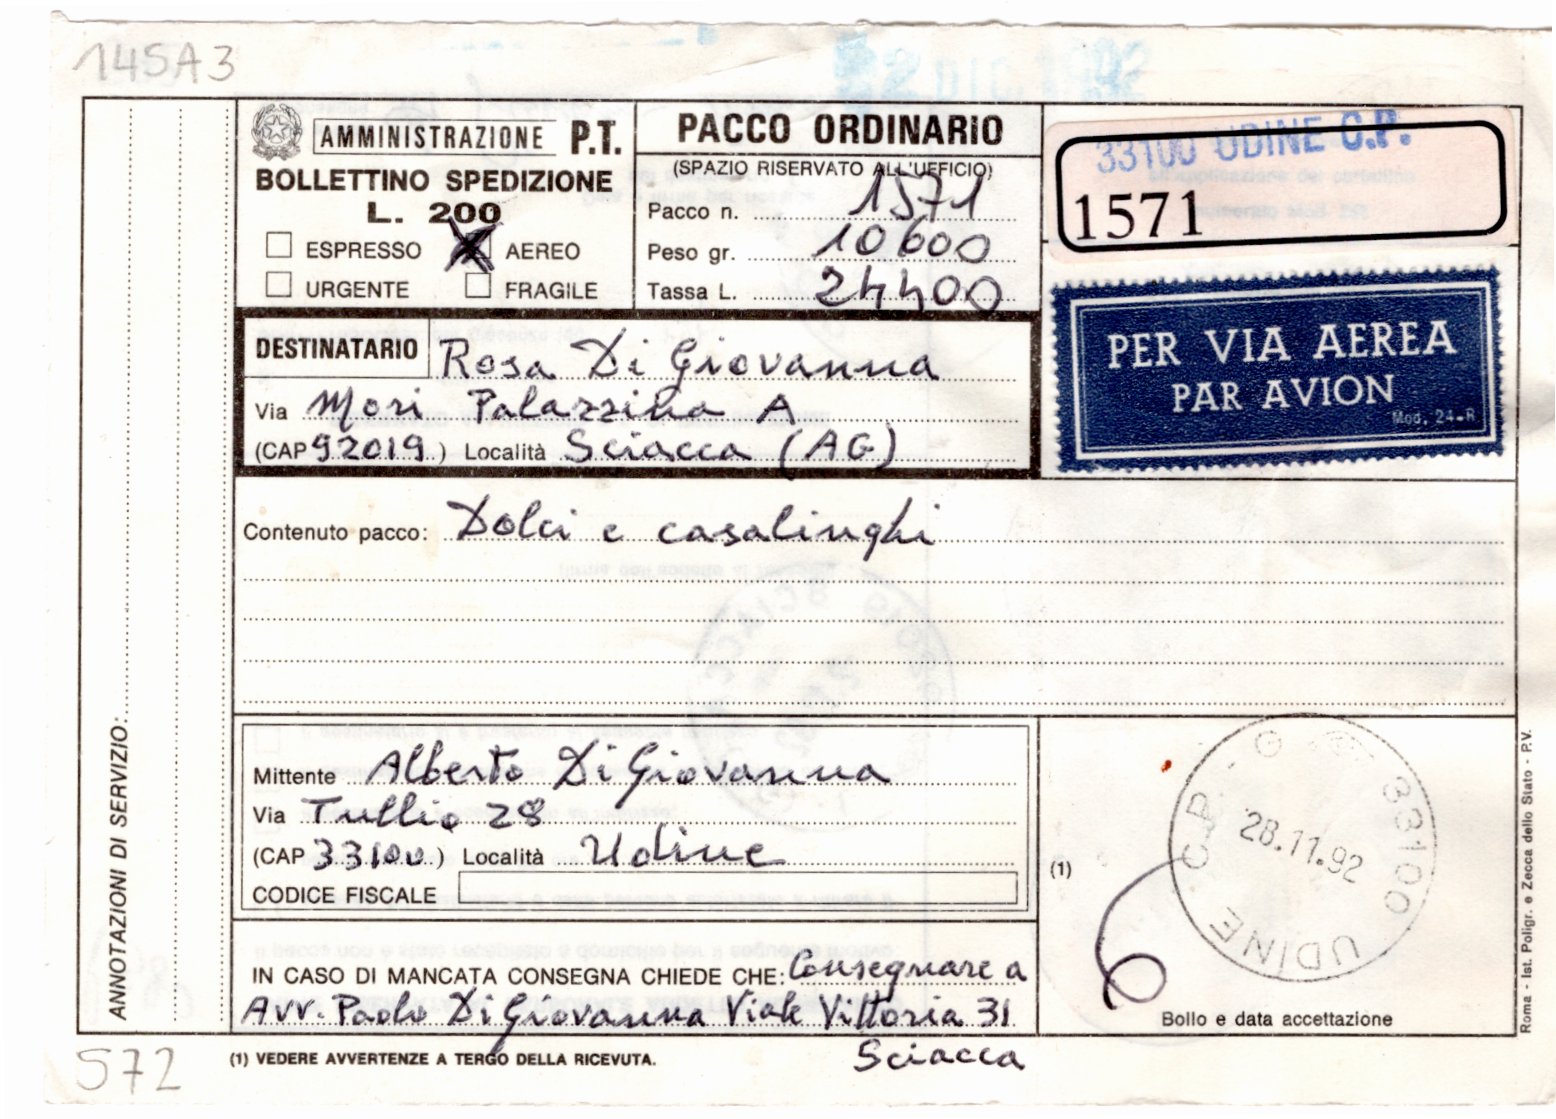 145A3
2 DIC. 1992
AMMINISTRAZIONE P.T.
BOLLETTINO SPEDIZIONE
L. 200
ESPRESSO AEREO
URGENTE FRAGILE
PACCO ORDINARIO
(SPAZIO RISERVATO ALL'UFFICIO)
Pacco n. 1571
Peso gr. 10600
Tassa L. 24400
33100 UDINE C.P.
1571
PER VIA AEREA
PAR AVION
Mod. 24-R
DESTINATARIO Rosa Di Giovanna
Via Mori Palazzina A
(CAP 92019) Località Sciacca (AG)
Contenuto pacco: Dolci e casalinghi
Mittente Alberto Di Giovanna
Via Tullio 28
(CAP 33100) Località Udine
CODICE FISCALE
IN CASO DI MANCATA CONSEGNA CHIEDE CHE: Consegnare a
Avv. Paolo Di Giovanna Viale Vittoria 31
Sciacca
(1)
33100 UDINE CP
28.11.92
Bollo e data accettazione
(1) VEDERE AVVERTENZE A TERGO DELLA RICEVUTA.
ANNOTAZIONI DI SERVIZIO:
Roma - Ist. Poligr. e Zecca dello Stato - P.V.
572